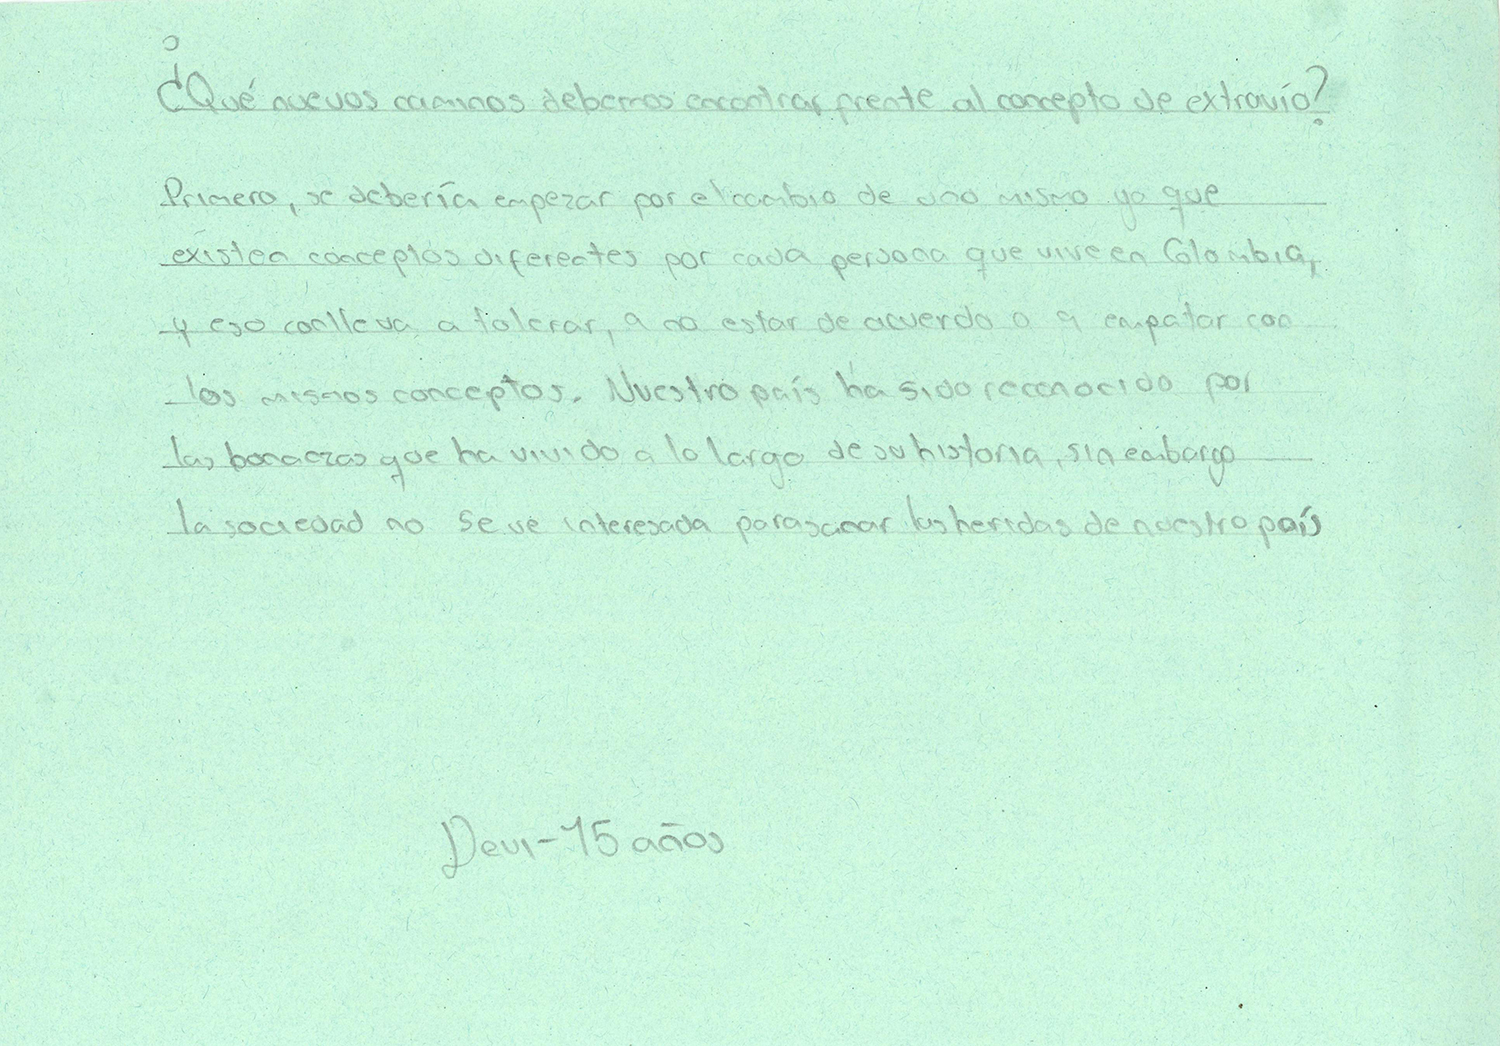 ¿Qué nuevos caminos debemos encontrar frente al concepto de extravío?
Primero, se debería empezar por el cambio de uno mismo ya que
existen conceptos diferentes por cada persona que vive en Colombia,
y eso conlleva a tolerar, a no estar de acuerdo o a empatar con
los mismos conceptos. Nuestro país ha sido reconocido por
las que ha vivido a lo largo de su historia, sin embargo
la sociedad no se ve interesada para sanar las heridas de nuestro país
Devi-15 años